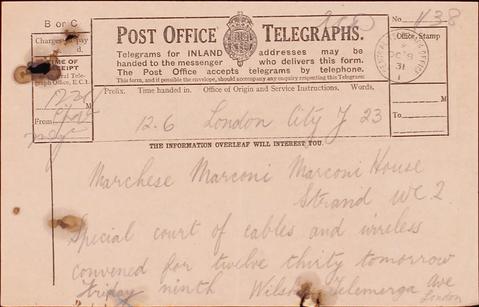 B or C
No. 438
POST OFFICE TELEGRAPHS.
Office Stamp
Charges to pay
Telegrams for INLAND addresses may be
handed to the messenger who delivers this form.
The Post Office accepts telegrams by telephone.
This form, and if possible the envelope, should accompany any enquiry respecting this Telegram.
TIME OF
RECEIPT
Office, E.C.1.
Prefix. Time handed in. Office of Origin and Service Instructions. Words.
M
From
M
To
12.6 London City Y 23
THE INFORMATION OVERLEAF WILL INTEREST YOU.
Marchese Marconi Marconi House
Strand WC2
Special court of cables and wireless
convened for twelve thirty tomorrow
Friday ninth Telemerga Ave
London